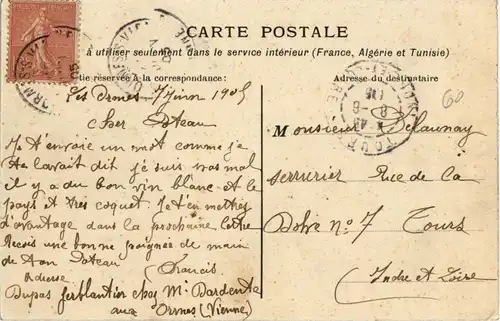 CARTE POSTALE
à utiliser seulement dans le service intérieur (France, Algérie et Tunisie)
Partie réservée à la correspondance:
Adresse du destinataire
60
Les Ormes 7 Juin 1905
cher Poteau
Je t'envoie un mot comme je
te lavait dit je suis pas mal
il y a du bon vin blanc et le
pays et très coquet Je t'en metrès
d'avantage dans la prochaine lettre
Recois une bonne poignée de main
de ton Poteau
Francis
adresse
Dupas ferblantier chez Mr Dardente
aux Ormes (Vienne)
Monsieur Delaunay
serrurier Rue de la
Dolve no 7 Tours
(Indre et Loire)